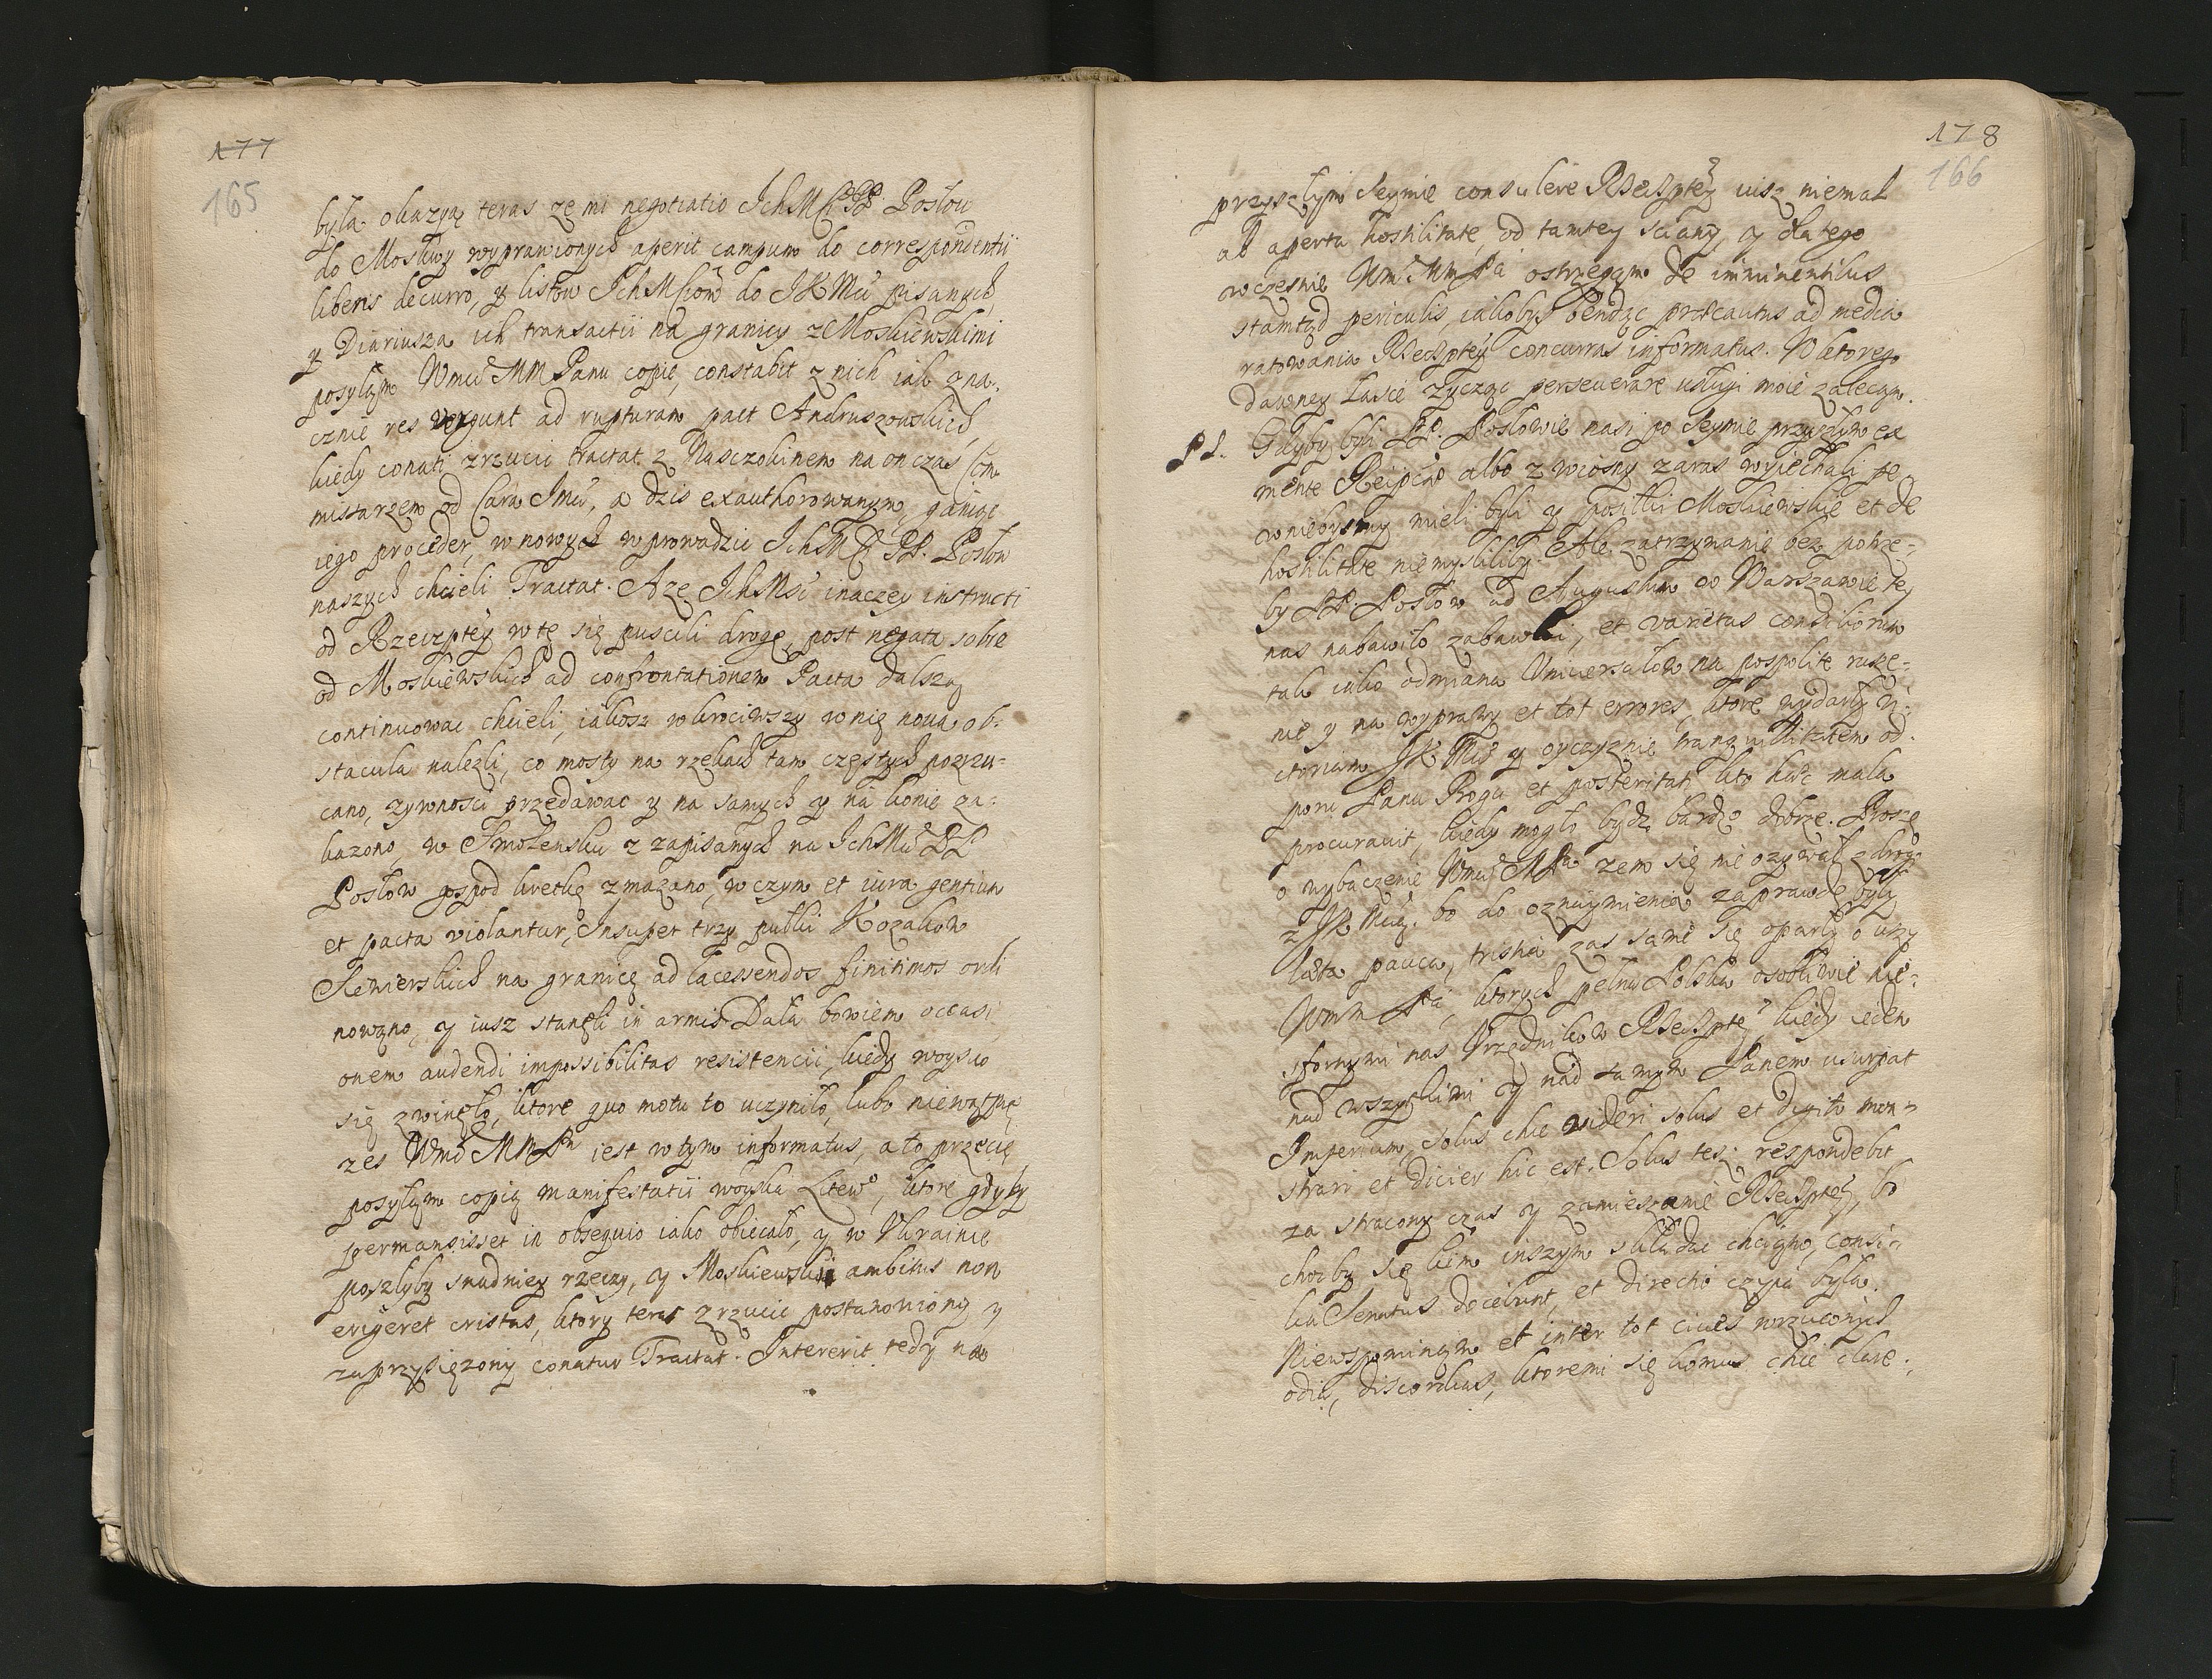 177
165
była okazya teras ze mi negotiatio IchMći PP. Posłow
do Moskwy wyprawionych aperit campum do correspondentii
liberis decurro, y listow IchMćiow do JKMći pisanych,
y Diariusza ich transactii na granicy z Moskiewskimi
posyłam Wmći MM Panu copie, constabit z nich iak zna-
cznie res vergunt ad rupturam pact Andruszowskich,
kiedy conati zrzucić tractat z Nasczokinem na on czas Com
missarzem od Cara Jmći, a dzis exauthorowanym, ganiąc
iego proceder, w nowych wprowadzić IchMći PP. Posłow
naszych chcieli Tractat. Aze IchMść inaczey instructi
od Rzeczptey w tę się puscili drogę, post negata sobie
od Moskiewskich ad confrontationem Pacta dalszą
continuowac chcieli, iakosz wkrociwszy w nię nova ob-
stacula nalezli, co mosty na rzekach tam częstych pozrzu-
cano, zywnosci przedawac y na samych y na konie za-
kazono, w Smolensku z zapisanych na IchMći PP
Posłow gospod kretkę zmazano, w czym et iura gentium
et pacta violantur, Insuper trzy pułki Kozakow
Siewierskich na granicę ad lacessendos finitimos ordi
nowano, y iusz stanęli in armis. Dała bowiem occasi
onem audendi impossibilitas resistencii, kiedy woysko
się zwinęło, ktore quo motu to uczyniło, lubo niewątpię
zes Wmć MMPn iest w tym informatus, a to przecię
posyłam copią manifestatii woyska Littewo, ktore gdyby
permansisset in obsequio iako obiecało, y w Ukrainie
poszłyby snadniey rzeczy, y Moskiewski ambitus non
erigeret cristas, ktory teras zrzucic postanowiony y
zaprzysięzony conatur Tractat. Intererit tedy na
178
166
przyszłym Seymie consulere Rzeczptey iusz niemal
ab aperta hostilitate, od tamtey sciany, y dlatego
wczesnie Wmć MmPa ostrzegam de imminentibus
stamtąd periculis, iakobys bendąc præcautus ad media
ratowania Rzeczptey concurras informatus. W ktorego
dawney łasce zycząc perseverare usługi moie zalecam.
PS. Gdyby byli PP. Posłowie nasi po Seymie przeszłym ex
mente Reipcæ albo z wiosny zaras wyiechali, pe
wniebysmy mieli byli y posiłki Moskiewskie et de
hostilitate niemysliliby. Ale zatrzymanie bez potrze-
by PP. Posłow ad Augustum w Warszawie tey
nas nabawiło zabawki, et varietas consiliorum
tak iako odmiana Uniwersałow na pospolite rusze-
nie y na wyprawy et tot errores, ktore wydarły vi-
ctoriam JKMći y oyczyznie tranquillitatem od
poru Panu Bogu et posteritati kto hæc mala
procuravit, kiedy mogło bydz bardzo dobrze. Proszę
o wybaczenie Wmći MPa zem się nie ozywał z drogi
z JKMcią. bo do oznaymienia zaprawdę były
læta pauca, tristia zas same się oparły o uszy
WmmPa, ktorych pełna Polska osobliwie nie-
sfornymi nas Urzędnikow Rzeczptey, kiedy ieden
nad wszytkimi y nad samym Panem usurpat
Imperium, solus chce videri solus et digito mon-
strari et dicier hic est. Solus tesz respondebit
za stracony czas y zamieszanie Rzeczptey, bo
choćby się kim inszym składac chciano, consi-
lia Senatus docebunt, et directio czyia była.
Niewspominam et inter tot cives wrzuconych
odia, discordias, ktoremi się komus chce clare